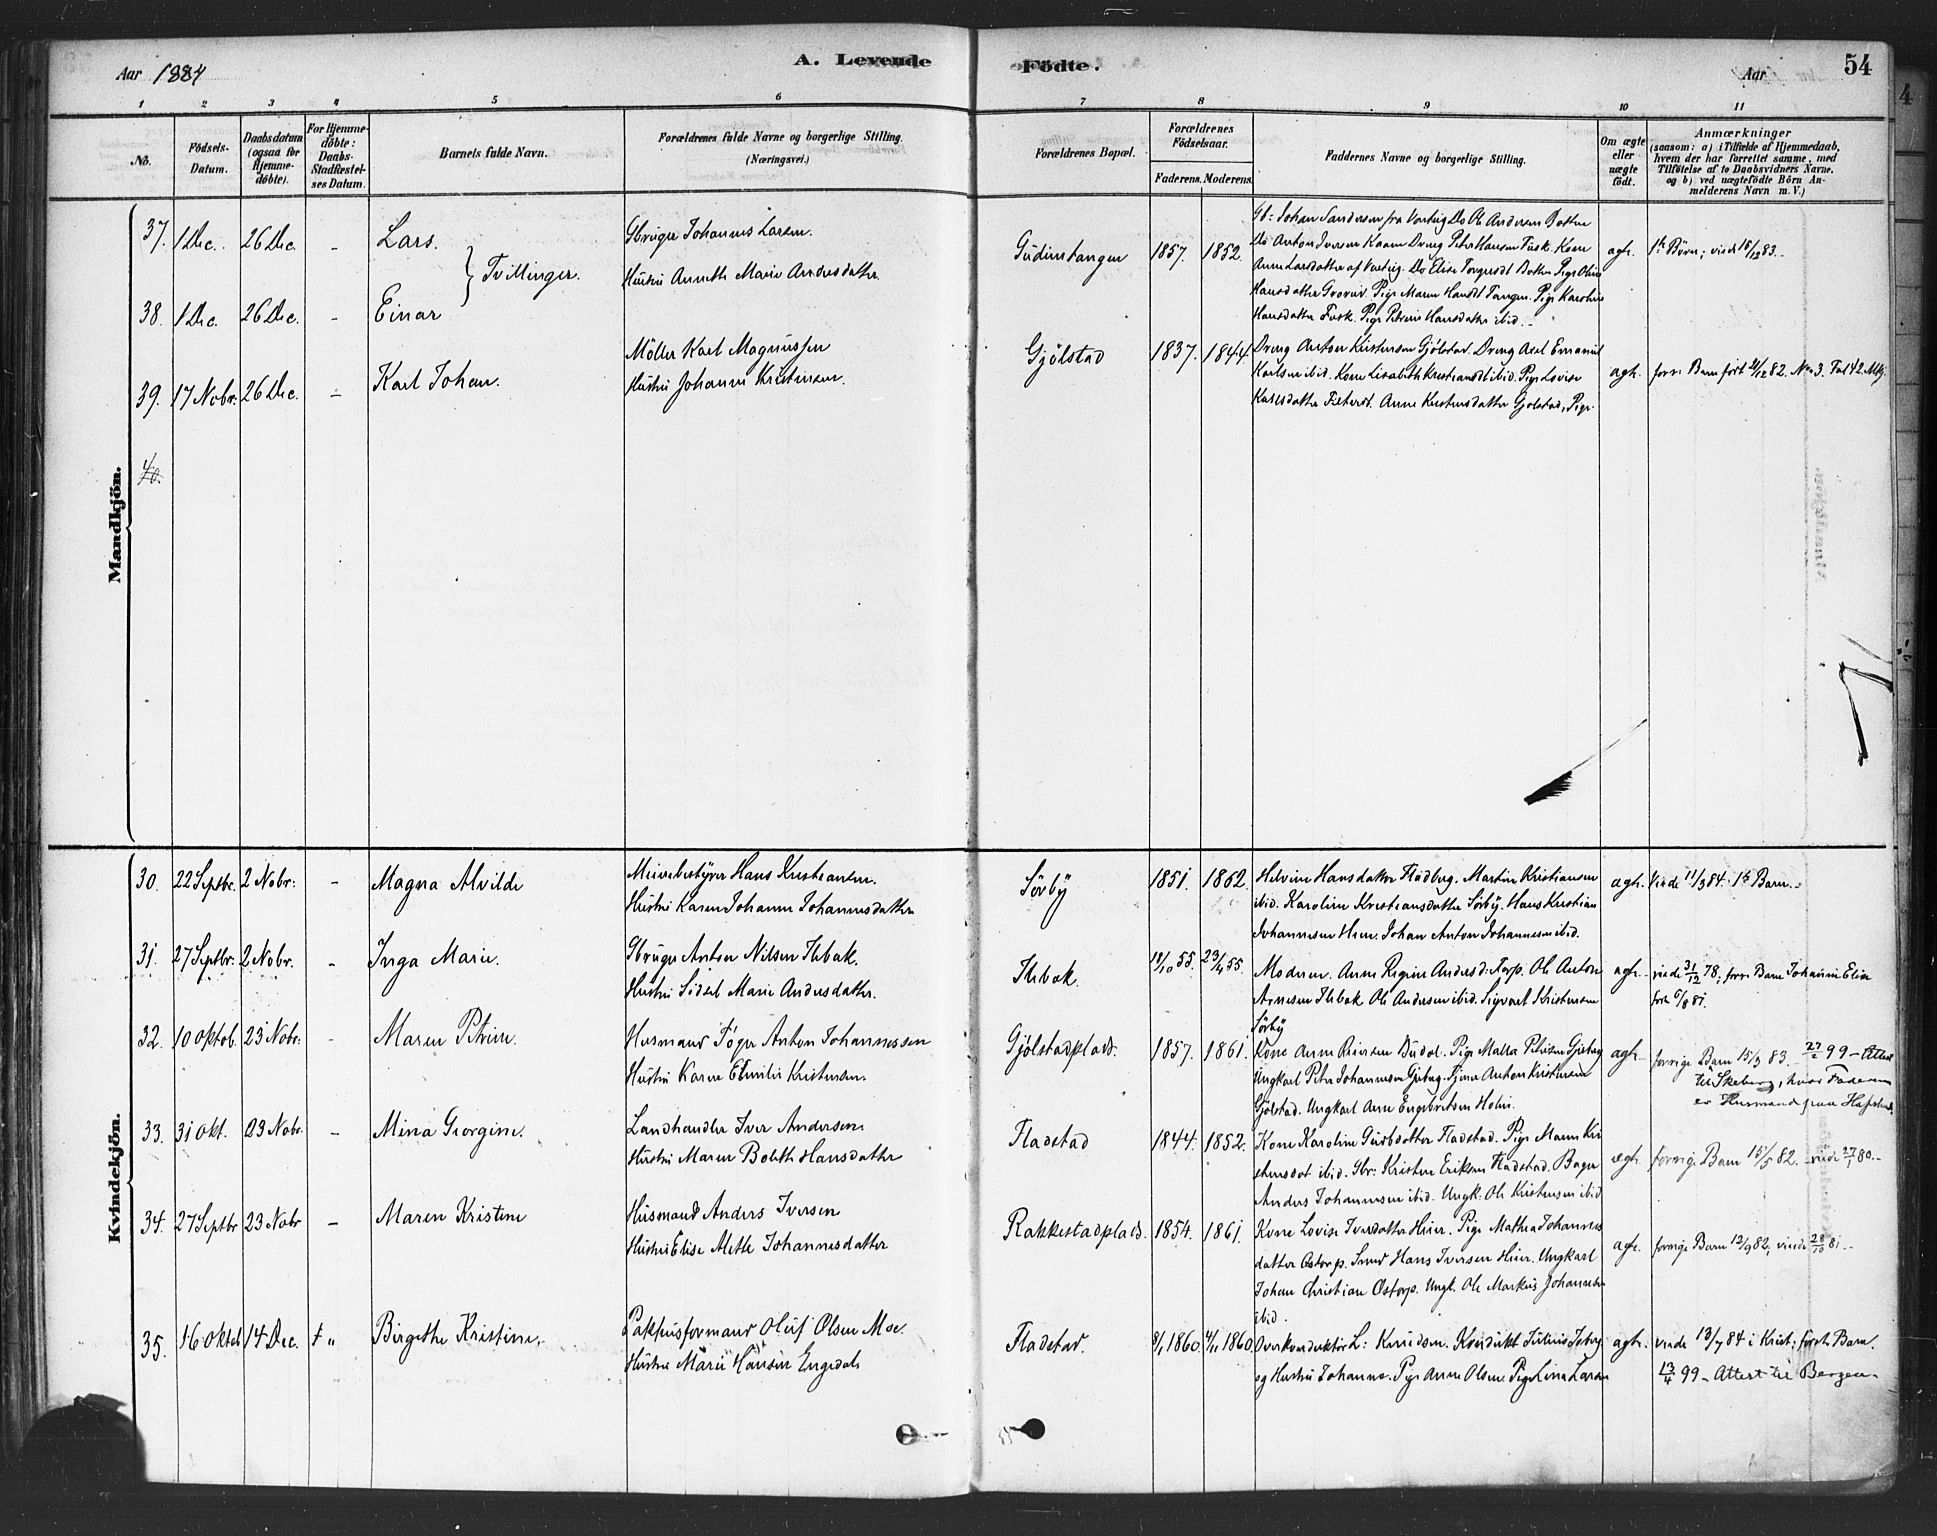 Aar 1884
A. Levende
Födte.
Aar
54
1 2 3 4 5 6 7 8 9 10 11
No.
Födsels-
Datum.
Daabsdatum
(ogsaa for
Hjemme-
döbte).
For Hjemme-
döbte:
Daabs-
Stadfæstel-
ses Datum.
Barnets fulde Navn.
Forældrenes fulde Navne og borgerlige Stilling.
(Næringsvei.)
Forældrenes Bopæl.
Forældrenes
Födselsaar.
Faderens. Moderens.
Faddernes Navne og borgerlige Stilling.
Om ægte
eller
uægte
födt.
Anmærkninger
(saasom: a) i Tilfælde af Hjemmedaab,
hvem der har forrettet samme, med
Tilföielse af to Daabsvidners Navne.
og b) ved uægtefödte Börn An-
melderens Navn m. V.)
Mandkjön.
37. 1 Dec. 26 Dec. - Lars.
Gbruger Johannes Larsen.
Hustru Annethe Marie Andersdatter
} Tvillinger.
Gudimtangen 1857. 1852.
Gb: Johan Sandersen fra Vortug Do Ole Andersen Botten
Do Anton Iversen Kaam Dreng Peter Hansen Fusk. Kone
Anne Larsdatter af Vortug. Do Elise Torgersdt Botten Pige Oline
Hansdatter Grorud. Pige Maren Hansdt Tangen. Pige Karoline
Hansdatter Fusk. Pige Petrine Hansdatter ibid.
ægt. 1te Börn; viede 15/12 83.
38. 1 Dec. 26 Dec. - Einar
39. 17 Nobr. 26 Dec. - Karl Johan.
Möller Karl Magnussen
Hustru Johanne Kristensen.
Gjölstad 1837. 1844.
Dreng Anton Kristensen Gjölstad. Dreng Axel Emanuel
Karlsen ibid. Kone Lisabeth Kristiansdt ibid. Pige Lovise
Karlsdatter Anne Kristensdatter Gjölstad, Pige.
ægt. forr. Barn född 21/12 82. No 3. Fol 42. Mkj.
40.
Kvindekjön.
30. 22 Septbr. 2 Nobr: - Magna Alvilde
Meieribestyrer Hans Kristiansen.
Hustru Karen Johanne Johannesdatter
Sörby 1851. 1862.
Helvine Hansdatter Fladberg. Martin Kristiansen
ibid. Karoline Kristiansdatter Sörby. Hans Kristian
Johannesen Hien. Johan Anton Johannesen ibid.
ægt. Viede 11/3 84. 1te Barn.
31. 27 Septbr. 2 Nobr. - Inga Marie.
Gbruger Anton Nilsen Thbak.
Hustru Sidsel Marie Andersdatter.
Thbak. 18/10 55. 23/4 55.
Moderen. Anne Regine Andersd: Torp. Ole Anton
Arnesen Thbak Ole Andersen ibid. Sigvart Kristensen
Sörby
ægt. viede 31/12 78; forr. Barn Johanne Elise
föd 6/8 81.
32. 10 Oktob. 23 Nobr: - Maren Petrine.
Husmand Töger Anton Johannessen
Hustru Karen Emilie Kristensen.
Gjölstadplads. 1857. 1861.
Kone Anne Budal. Pige Mathea Petersen Gjeberg
Ungkarl Peter Johannesen Gjeberg. Tjener Anton Kristensen
Gjölstad. Ungkarl Arne Engebretsen Holm.
ægt. forrige Barn 15/3 83. 27/2 99 - Attest
til Skeberg, hvor Faderen
er Husmand paa Hafslund.
33. 31 Okt. 23 Nobr - Mina Georgine.
Landhandler Iver Andersen
Hustru Maren Bolette Hansdatter
Fladstad 1844. 1852.
Kone Karoline Fladstad. Pige Maren Kri
stensdat ibid. Gbr: Kristen Eriksen Fladstad. Bager
Anders Johannesen ibid. Ungk. Ole Kristensen ibid
ægt. forrige Barn 15/5 82. viede 27/1 80.
34. 27 Septbr 23 Nobr - Maren Kristine
Husmand Anders Iversen
Hustru Elise Alette Johannesdatter
Rakkestadplads. 1854. 1861.
Kone Lovise Iversdatter Heier. Pige Mathea Johannes
datter Ostorp. Smed Hans Iversen Heier. Ungkarl
Johan Christian Ostorp. Ungk. Ole Markus Johannesen
ibid.
ægt. forrige Barn 12/9 82, viede 28/10 81.
35. 16 Oktob 14 Dec. + " Birgithe Kristine.
Pakhusformand Oluf Olsen Moe.
Hustru Marie Hansen Engedal
Fladstad. 8/1 1860. 4/11 1860.
Overkonduktör L: Knudsen. Konduktör Julius Isberg
og Hustru Johanne. Pige Anne Olsen Pige Lina Larsen
ægt. viede 13/7 84 i Krist; förste Barn.
13/4 99 - Attest til Bergen.